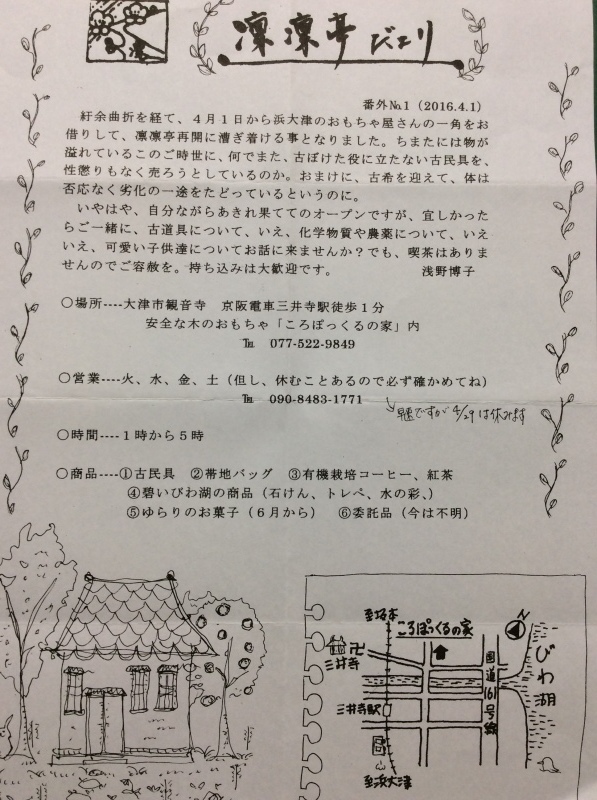 凛凛亭だより
番外№1（2016.4.1）
紆余曲折を経て、４月１日から浜大津のおもちゃ屋さんの一角をお
借りして、凛凛亭再開に漕ぎ着ける事となりました。ちまたには物が
溢れているこのご時世に、何でまた、古ぼけた役に立たない古民具を、
性懲りもなく売ろうとしているのか。おまけに、古希を迎えて、体は
否応なく劣化の一途をたどっているというのに。
いやはや、自分ながらあきれ果ててのオープンですが、宜しかった
らご一緒に、古道具について、いえ、化学物質や農薬について、いえ
いえ、可愛い子供達についてお話に来ませんか？でも、喫茶はありま
せんのでご容赦を。持ち込みは大歓迎です。 浅野博子
○場所----大津市観音寺 京阪電車三井寺駅徒歩１分
安全な木のおもちゃ「ころぽっくるの家」内
℡ 077-522-9849
○営業----火、水、金、土（但し、休むことあるので必ず確かめてね）
℡ 090-8483-1771
早速ですが4/29は休みます
○時間----１時から５時
○商品----①古民具 ②帯地バッグ ③有機栽培コーヒー、紅茶
④碧いびわ湖の商品（石けん、トレペ、水の彩、）
⑤ゆらりのお菓子（６月から） ⑥委託品（今は不明）
至坂本
ころぽっくるの家
N
卍
三井寺
国道161号線
びわ湖
三井寺駅
至浜大津